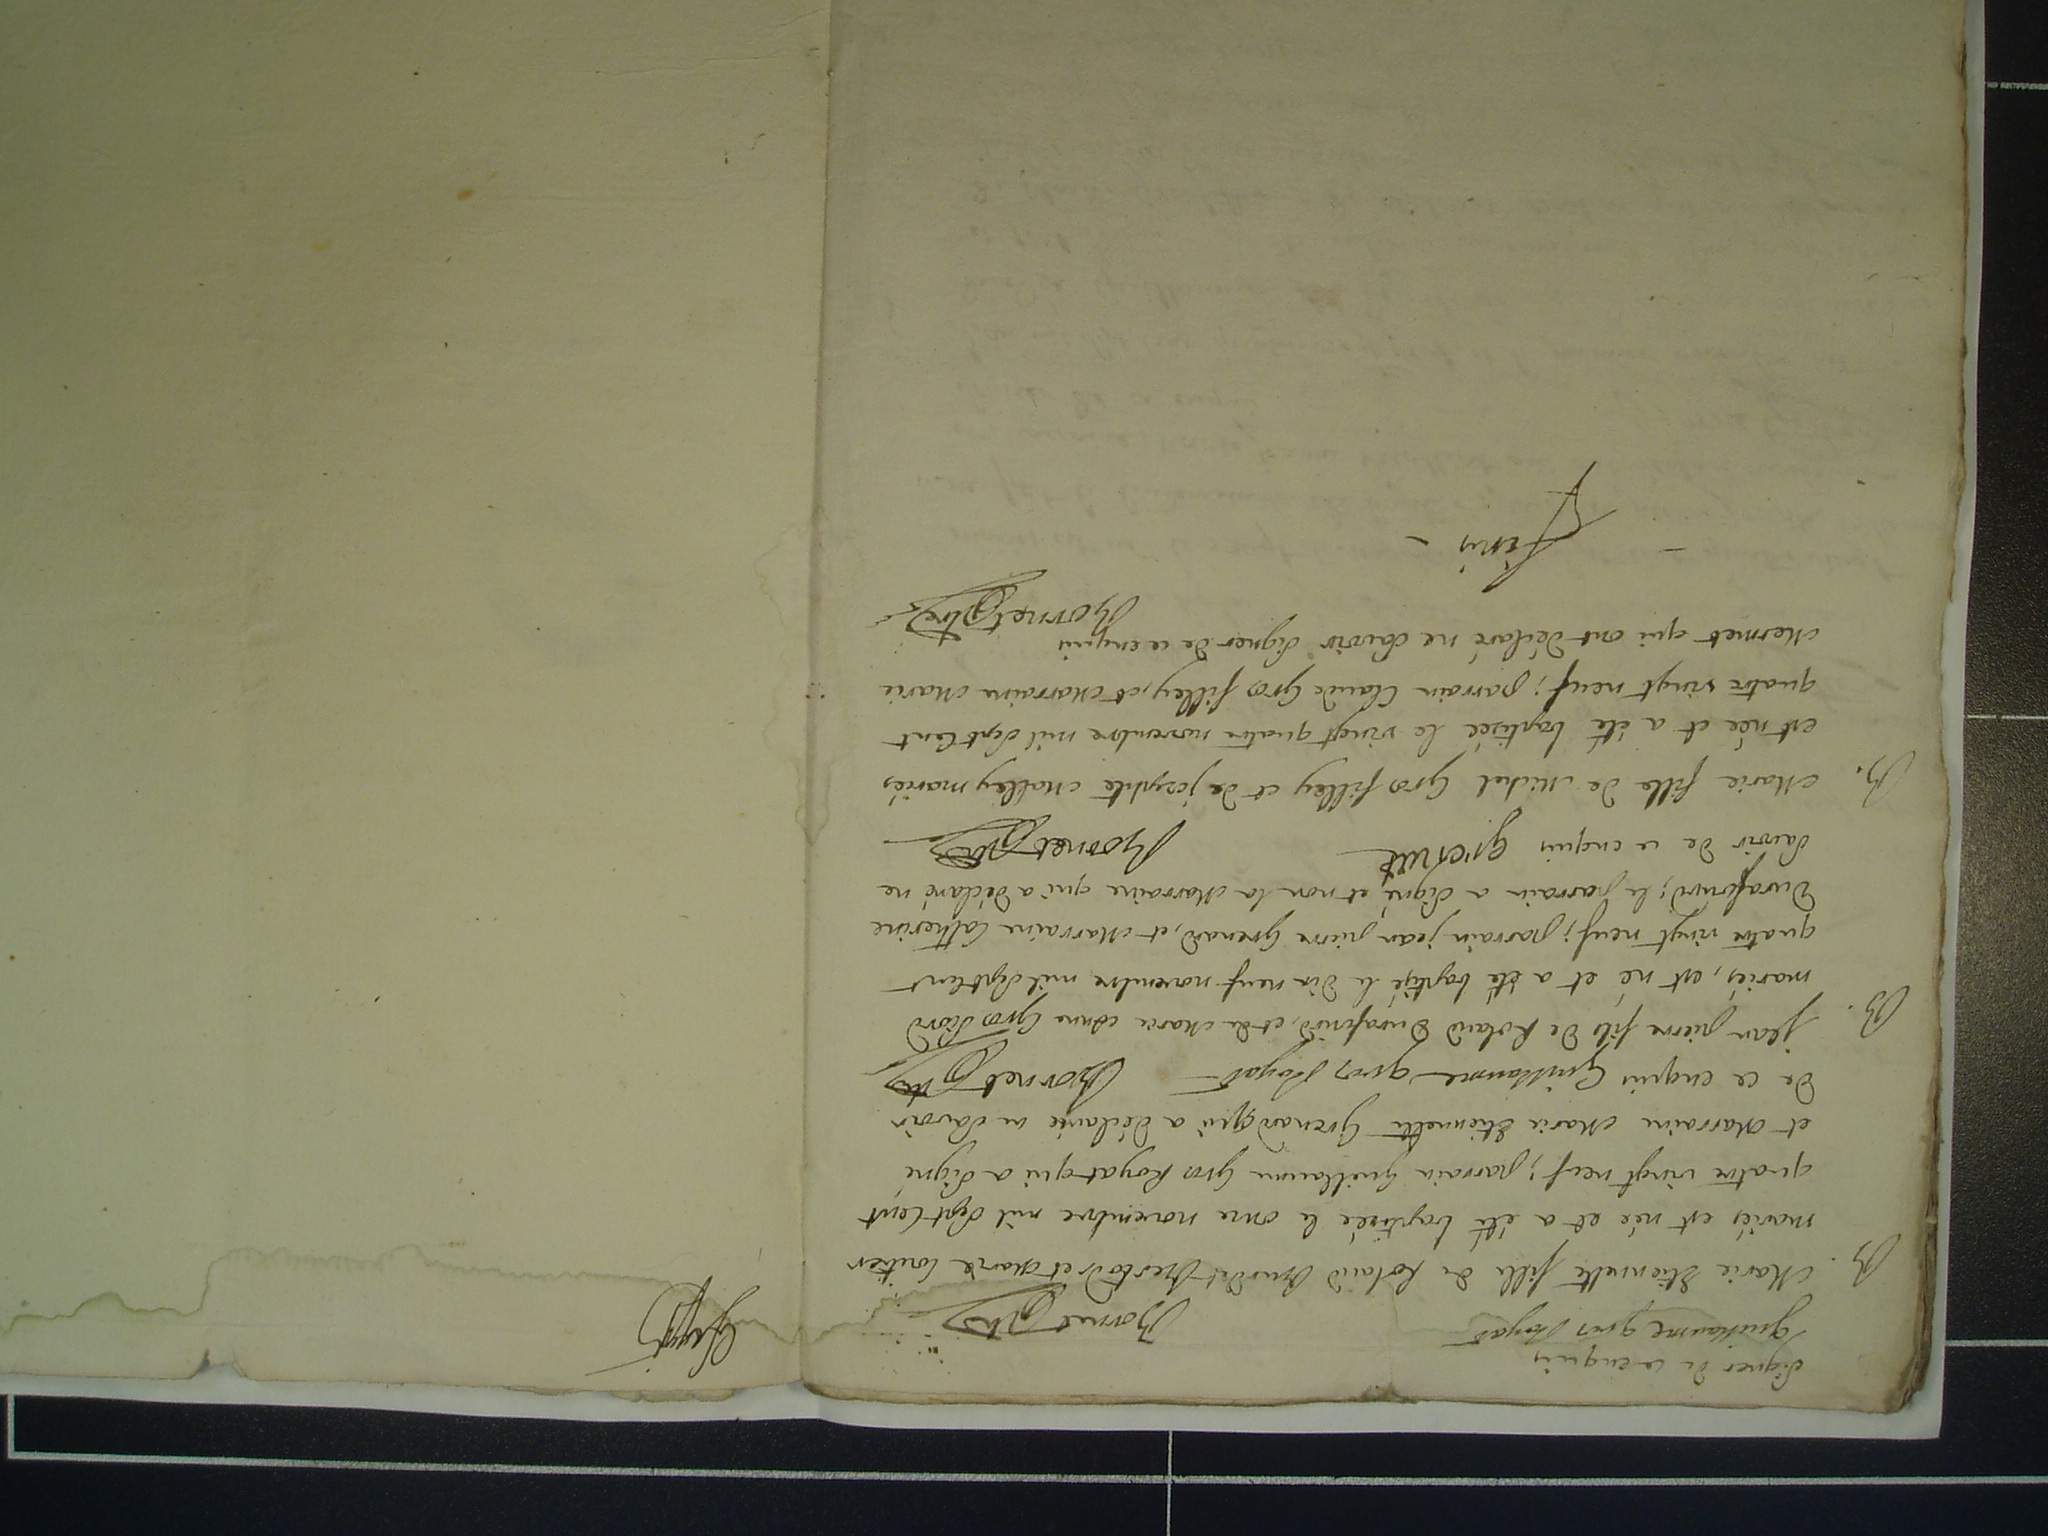 signer de ce enquis
Guillaume gros Royat Bornet
B. Marie Etiennette fille de Roland et Marie
mariés est née et a été baptisée le onze novembre mil sept cent
quatre vingt neuf; parrain Guillaume Gros Royat qui a signé,
et Marraine Marie Etiennette Grenard qui a déclaré ne savoir
de ce enquis Guillaume gros Royat Bornet
B. jean pierre fils de Roland Durafourd, et de Marie Anne Gros
mariés, est né et a été baptisé le dix neuf novembre mil sept cent
quatre vingt neuf; parrain jean pierre Grenard, et Marraine Catherine
Durafourd; le parrain a signé, et non la Marraine qui a déclaré ne
savoir de ce enquis Bornet
B. Marie fille de Michel Gros filley et de josephte mariés
est née et a été baptisée le vingt quatre novembre mil sept Cent
quatre vingt neuf; parrain Claude Gros filley, et Marraine Marie
Mermet qui ont déclaré ne savoir signer de ce enquis
Bornet
- finis -